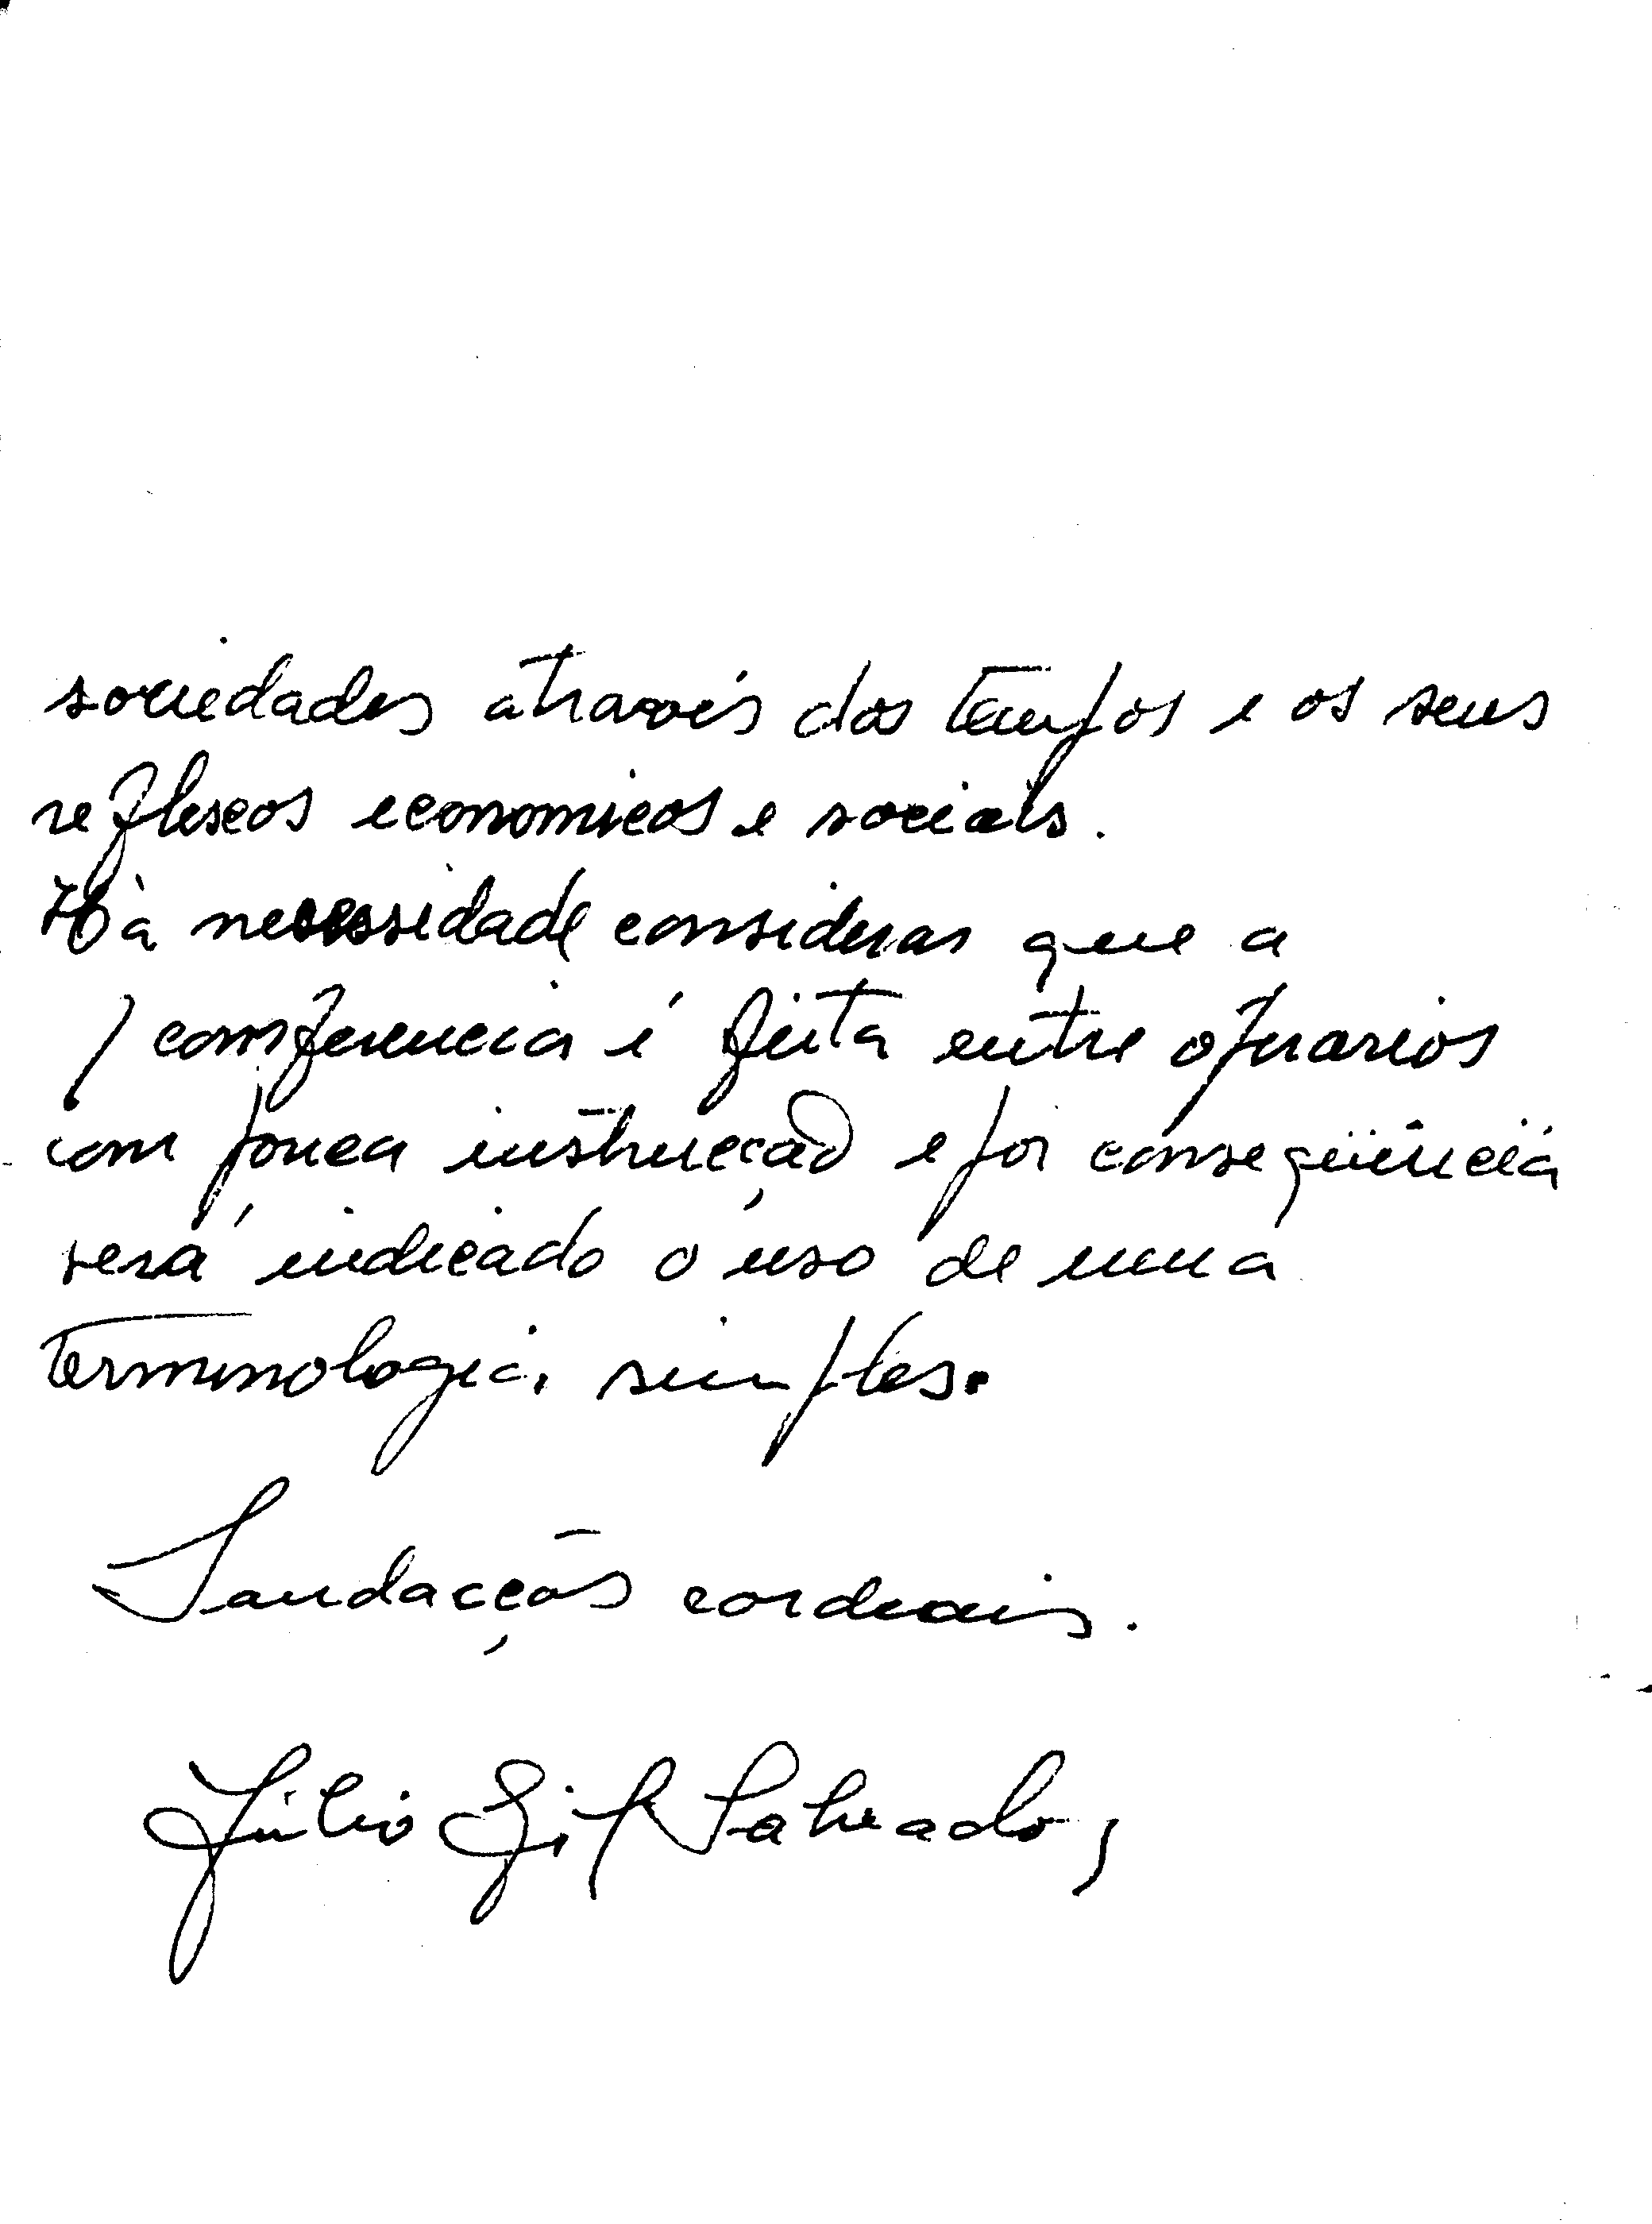 sociedades através dos tempos e os seus
reflescos economicos e sociais.
Hà necessidade considerar que a
conferencia é feita entre operarios
com pouca instrucção e por conseqüência
será indicado o uso de uma
terminologia simples.
Saudações cordeais.
Júlio Gil Salvador